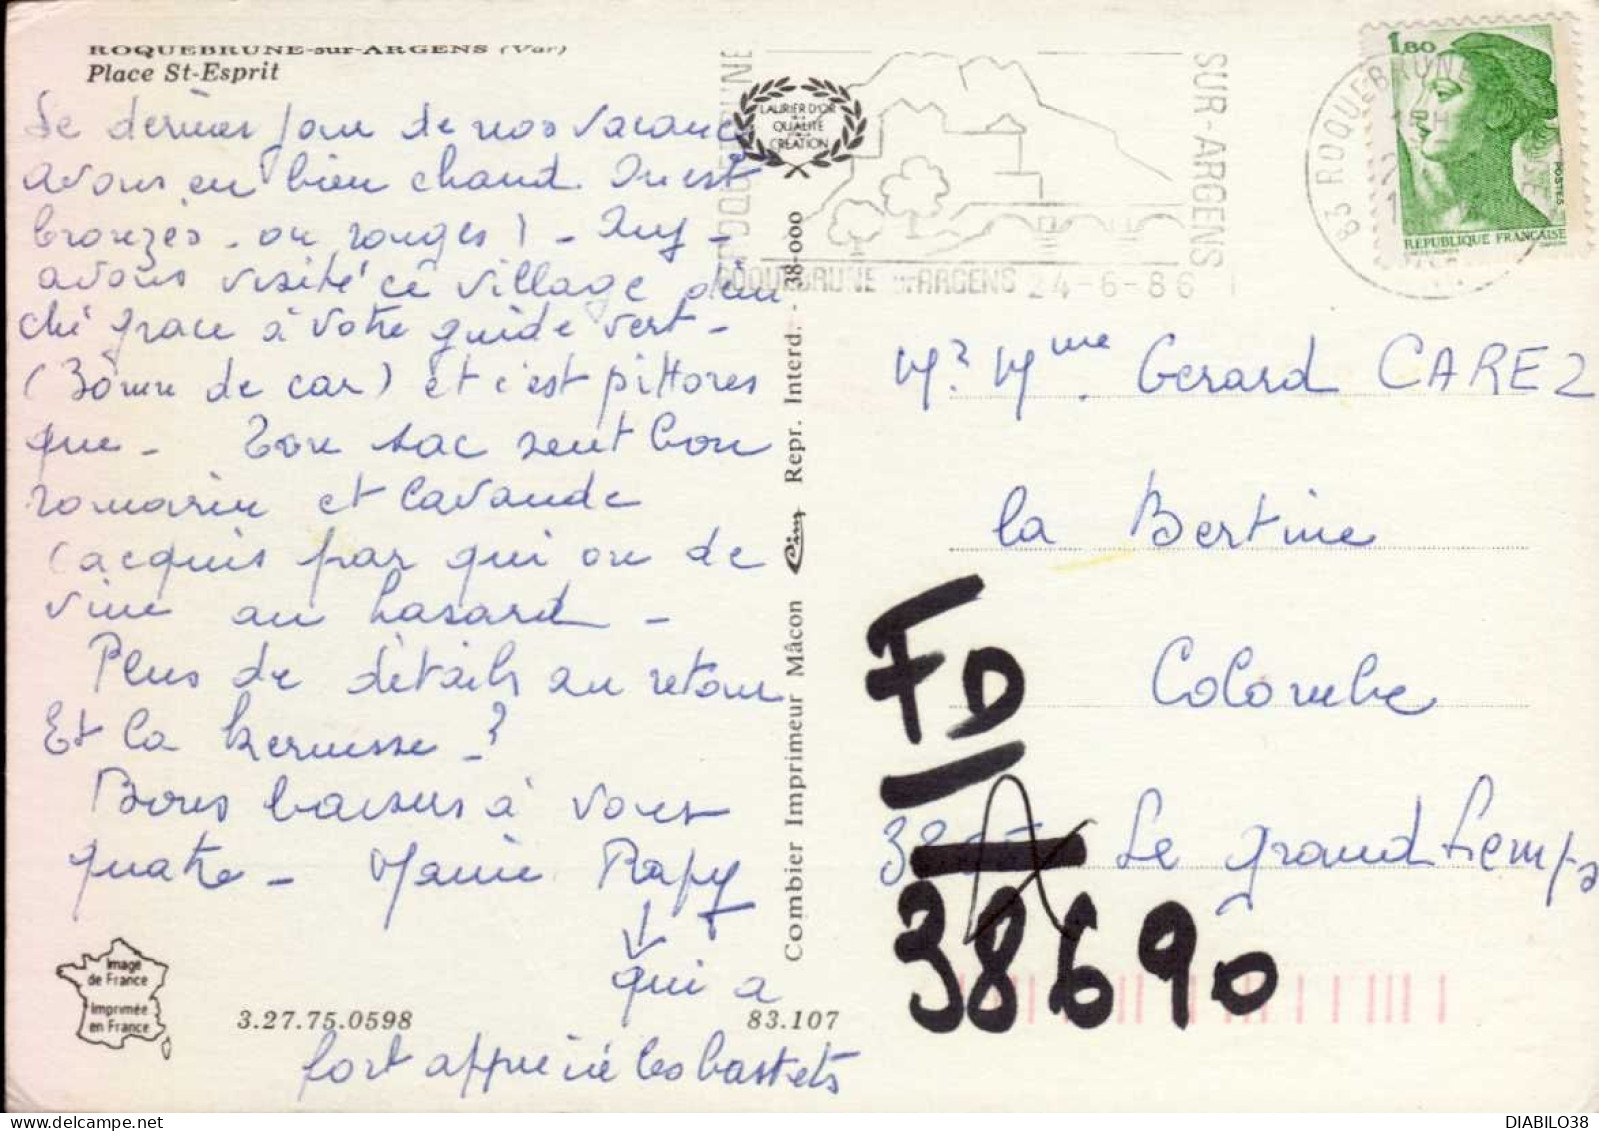 ROQUEBRUNE-sur-ARGENS (Var)
Place St-Esprit
Le dernier jour de nos vacances
avons eu bien chaud. On est
bronzés - ou rouges ! -
avons visité ce village
ché grace à votre guide vert -
de car) et c'est pittores
que - Ton sac sent bon
romarin et lavande
(acquis par qui ou de
vine au hasard -
Plus de détails au retour
Et la kermesse - ?
Bons baisers à vous
quatre - Mamie Rapy
↓
qui a
fort apprécié les baskets
Image
de France
Imprimée
en France
3.27.75.0598
83.107
Combier Imprimeur Mâcon Cim Repr. Interd. - 38-000
LAURIER D'OR
DE LA
QUALITÉ
CRÉATION
ROQUEBRUNE
SUR-ARGENS
ROQUEBRUNE sur ARGENS 24-6-86
83 ROQUEBRUNE
15H
1,80
POSTES
REPUBLIQUE FRANCAISE
Mr Mme Gerard CAREZ
la Bertine
Colombe
FD
Le grand Lemps
38690
DIABILO38